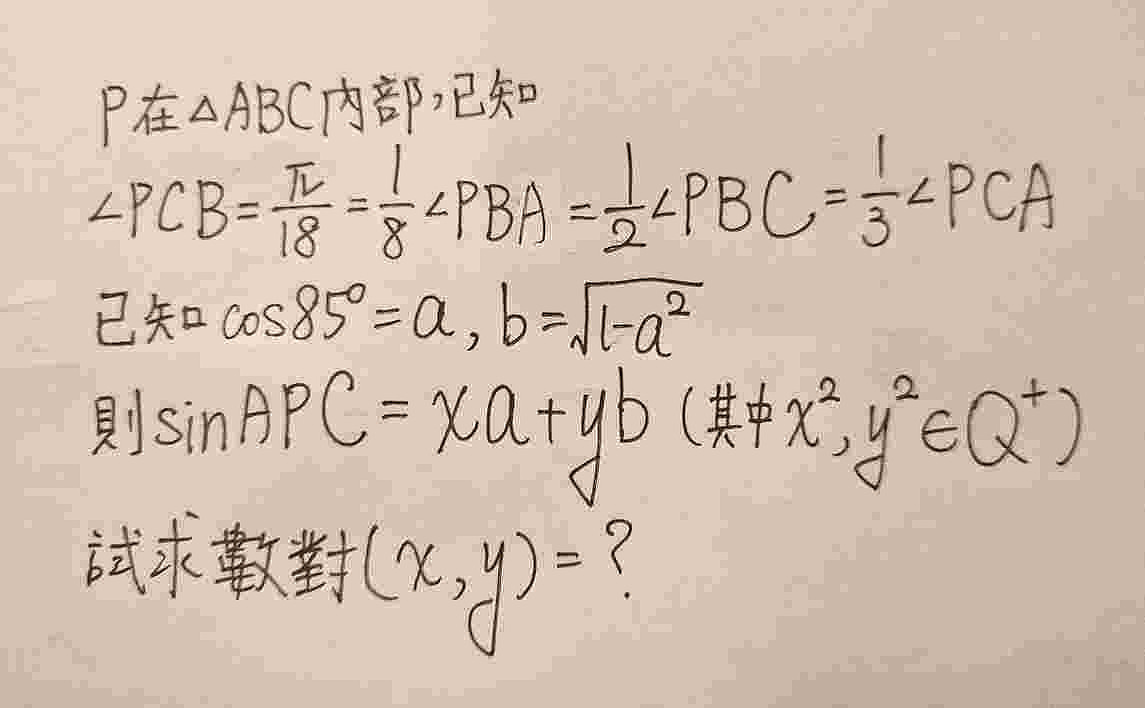 P在△ABC內部,已知
∠PCB=π/18=1/8∠PBA=1/2∠PBC=1/3∠PCA
已知cos85°=a, b=√(1-a²)
則sinAPC=xa+yb (其中x²,y²∈Q⁺)
試求數對(x,y)=?